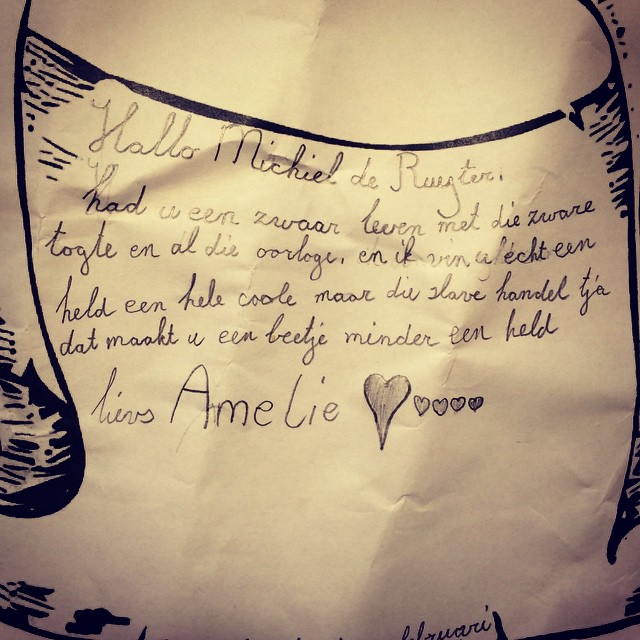 Hallo Michiel de Ruyter.
had u een zwaar leven met die zware
togte en al die oorloge. en ik vin u echt een
held een hele coole maar die slave handel tja
dat maakt u een beetje minder een held
lievs Amelie
februari